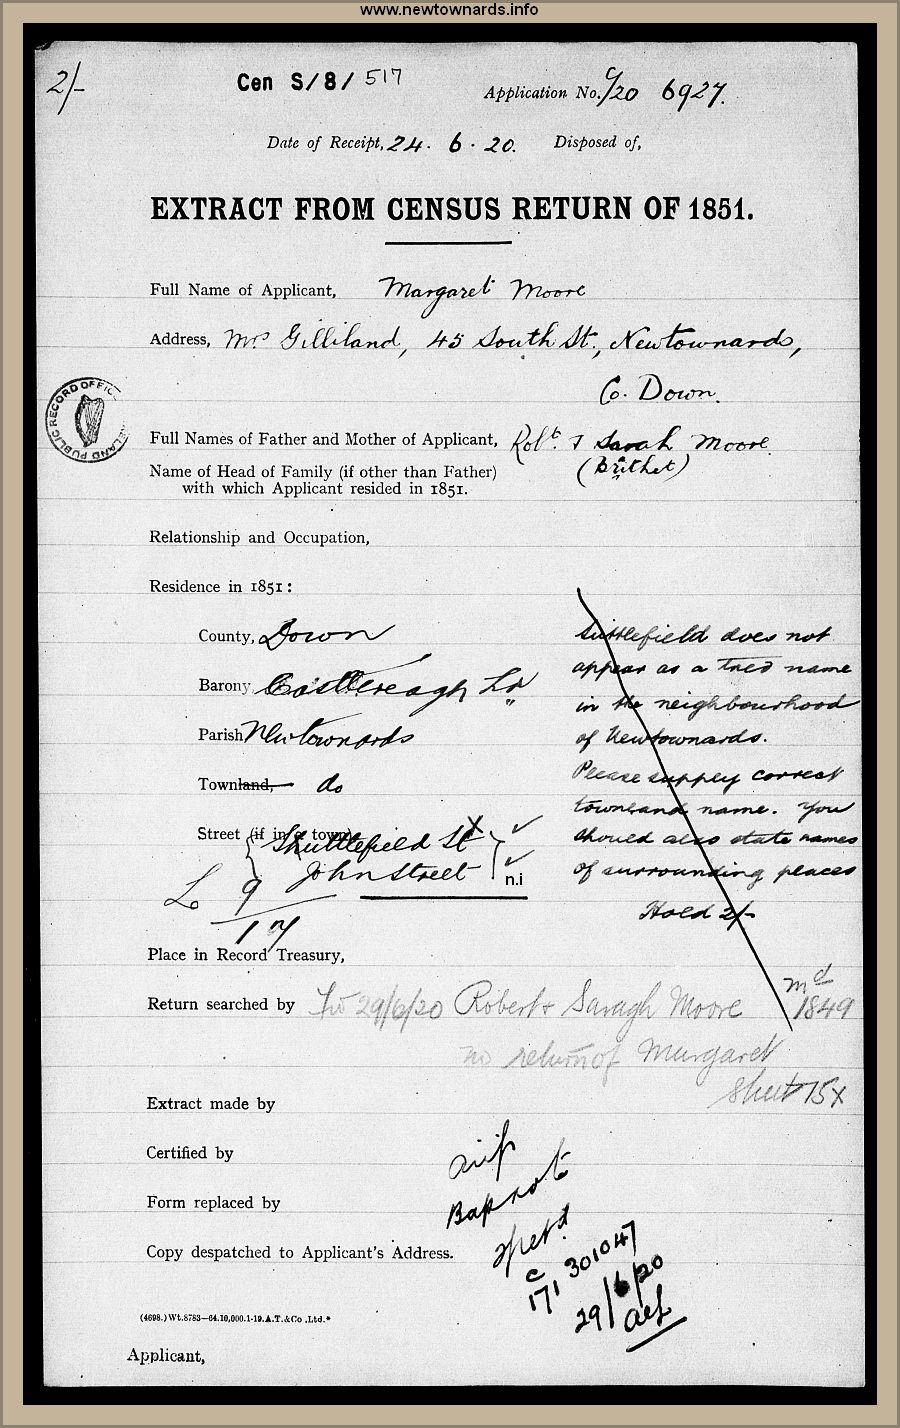 www.newtownards.info
2/-
Cen S/8/ 517
Application No. C/20 6927.
Date of Receipt, 24. 6. 20. Disposed of,
EXTRACT FROM CENSUS RETURN OF 1851.
Full Name of Applicant, Margaret Moore
Address, Mrs Gilliland, 45 South St., Newtownards,
Co. Down.
PUBLIC RECORD OFFICE IRELAND
Full Names of Father and Mother of Applicant, Robt. & Sarah Moore
Name of Head of Family (if other than Father)
with which Applicant resided in 1851.
Relationship and Occupation,
Residence in 1851:
County, Down
Barony, Castlereagh Lr
Parish Newtownards
Townland, do
Street (if in a town) Shuttlefield St X
John Street
n.i
L 9
17
Suttlefield does not
appear as a tnld name
in the neighbourhood
of Newtownards.
Please supply correct
townland name. You
should also state names
of surrounding places
Hold 2/-
Place in Record Treasury,
Return searched by 29/6/20 Robert & Saragh Moore md 1849
no return of Margaret
Sheet 15x
Extract made by
Certified by
Form replaced by
Copy despatched to Applicant's Address.
C
171 301047
29/6/20
(4698.)Wt.8783—64.10,000.1-19.A.T.&Co.,Ltd.*
Applicant,